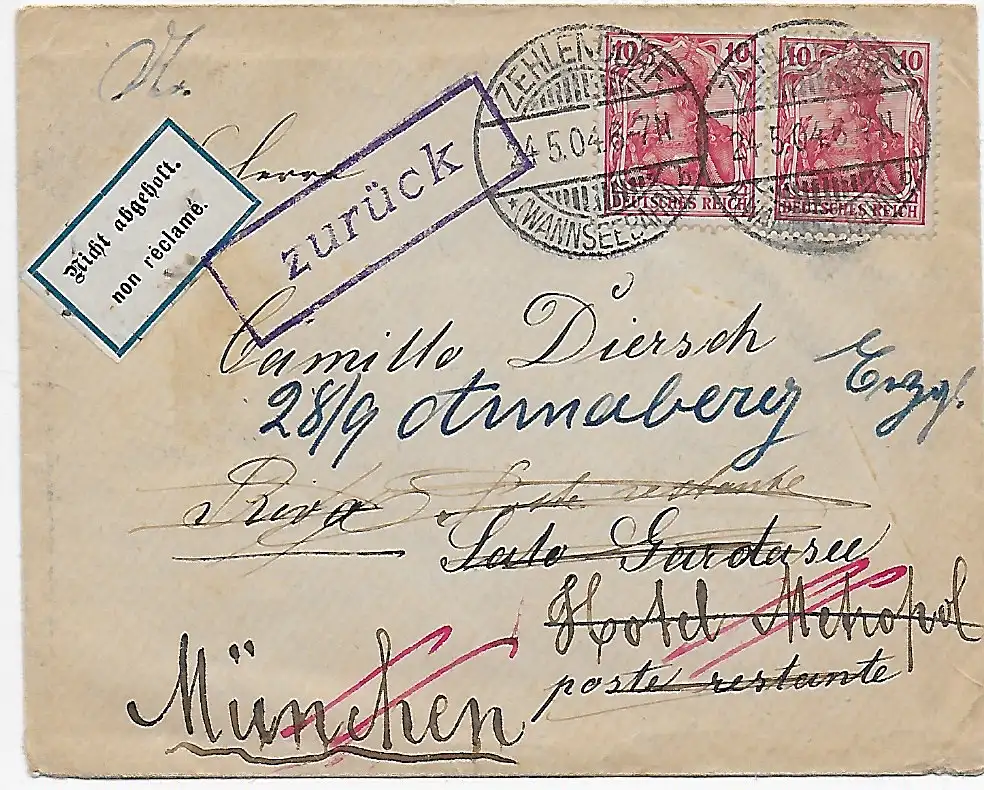 10 10 10 10
ZEHLENDORF
24.5.04.6-7N
b
* (WANNSEEBAHN) *
24.5.04.6-7N
DEUTSCHES REICH DEUTSCHES REICH
Nicht abgeholt.
non réclamé.
zurück
Herrn
Camillo Diersch
28/9 Annaberg Erzg.
Riva Poste restante
Salo Gardasee
Hotel Metropol
poste restante
München